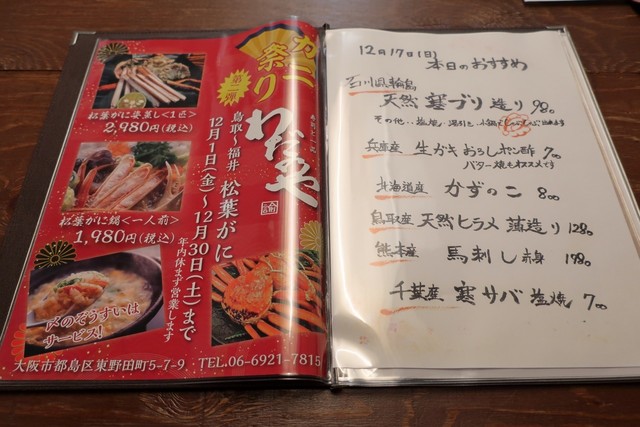 カニ祭り
松葉がに姿蒸し<1匹>
2,980円(税込)
松葉がに鍋<一人前>
1,980円(税込)
〆のぞうすいは
サービス!
鳥取〜福井 松葉がに
12月1日(金)〜12月30日(土)まで
年内休まず営業します
大阪市都島区東野田町5-7-9
TEL.06-6921-7815
12月17日(日)
本日のおすすめ
石川県輪島
天然 寒ブリ 造り 980
その他‥塩焼
兵庫産 生ガキ おろしポン酢 700
バター焼もオススメです
北海道産 かずのこ 800
鳥取産 天然ヒラメ 薄造り 1280
熊本産 馬刺し 赤身 1380
千葉産 寒サバ 塩焼 700